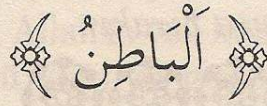 اَلْبَاطِنُ